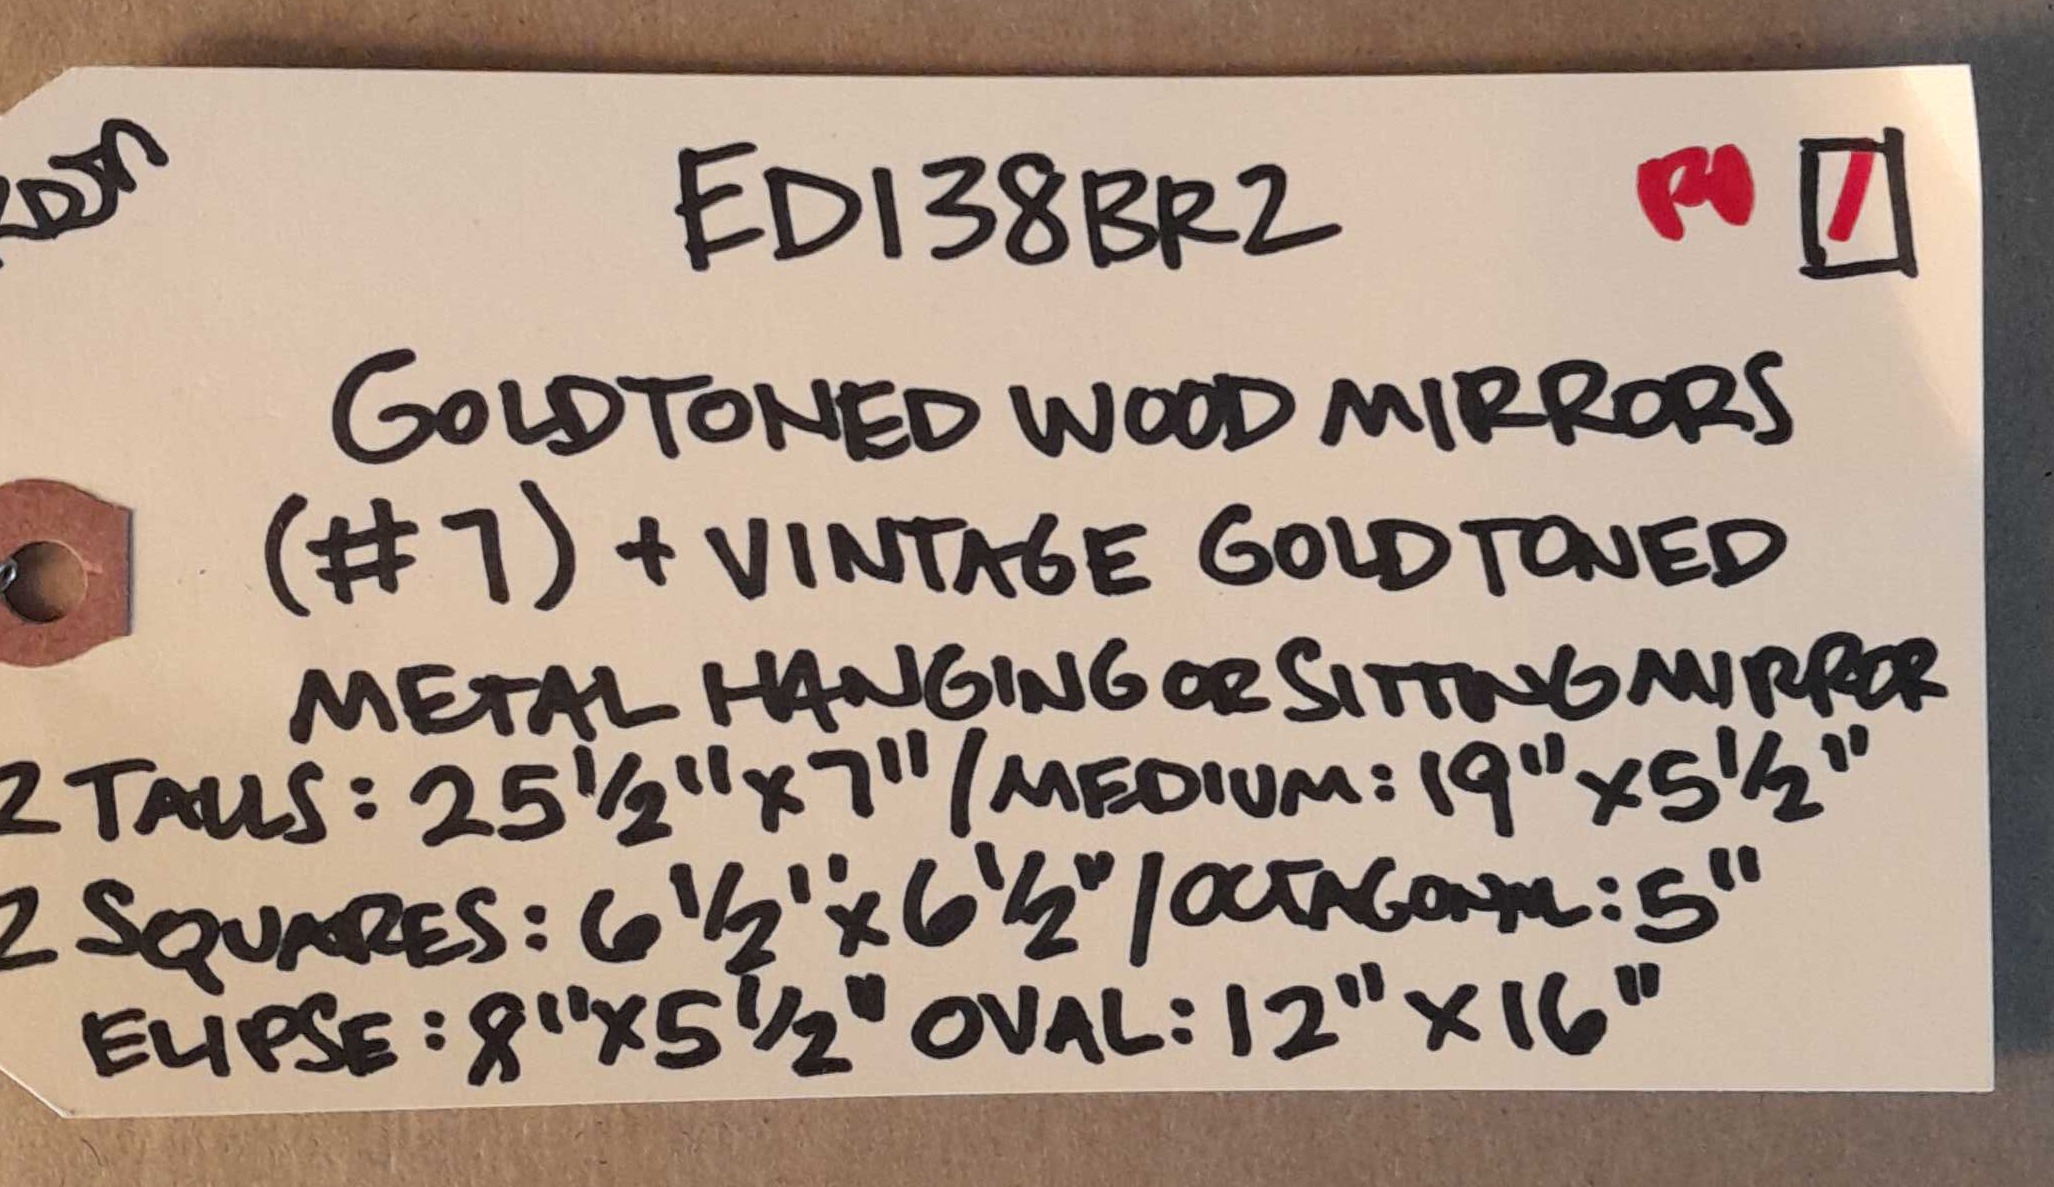 ED138BR2
GOLDTONED WOOD MIRRORS
(#7) + VINTAGE GOLDTONED
METAL HANGING OR SITTING MIRROR
2 TALLS: 25 1/2" x 7" / MEDIUM: 19" x 5 1/2"
2 SQUARES: 6 1/2" x 6 1/2" / OCTAGONAL: 5"
ELIPSE: 8" x 5 1/2" OVAL: 12" x 16"